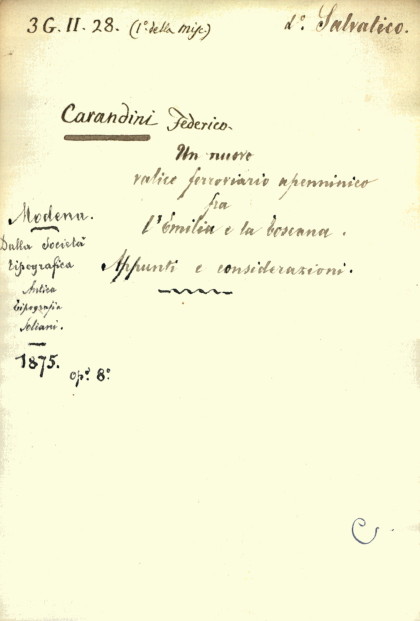 3 G. II. 28. (1º della Misc.) dº. Salvatico.
Carandini Federico.
Un nuovo
valico ferroviario apenninico
fra
l'Emilia e la Toscana.
Appunti e considerazioni.
Modena.
Dalla Società
tipografica
Antica
tipografia
Soliani.
1875.
op: 8º
C